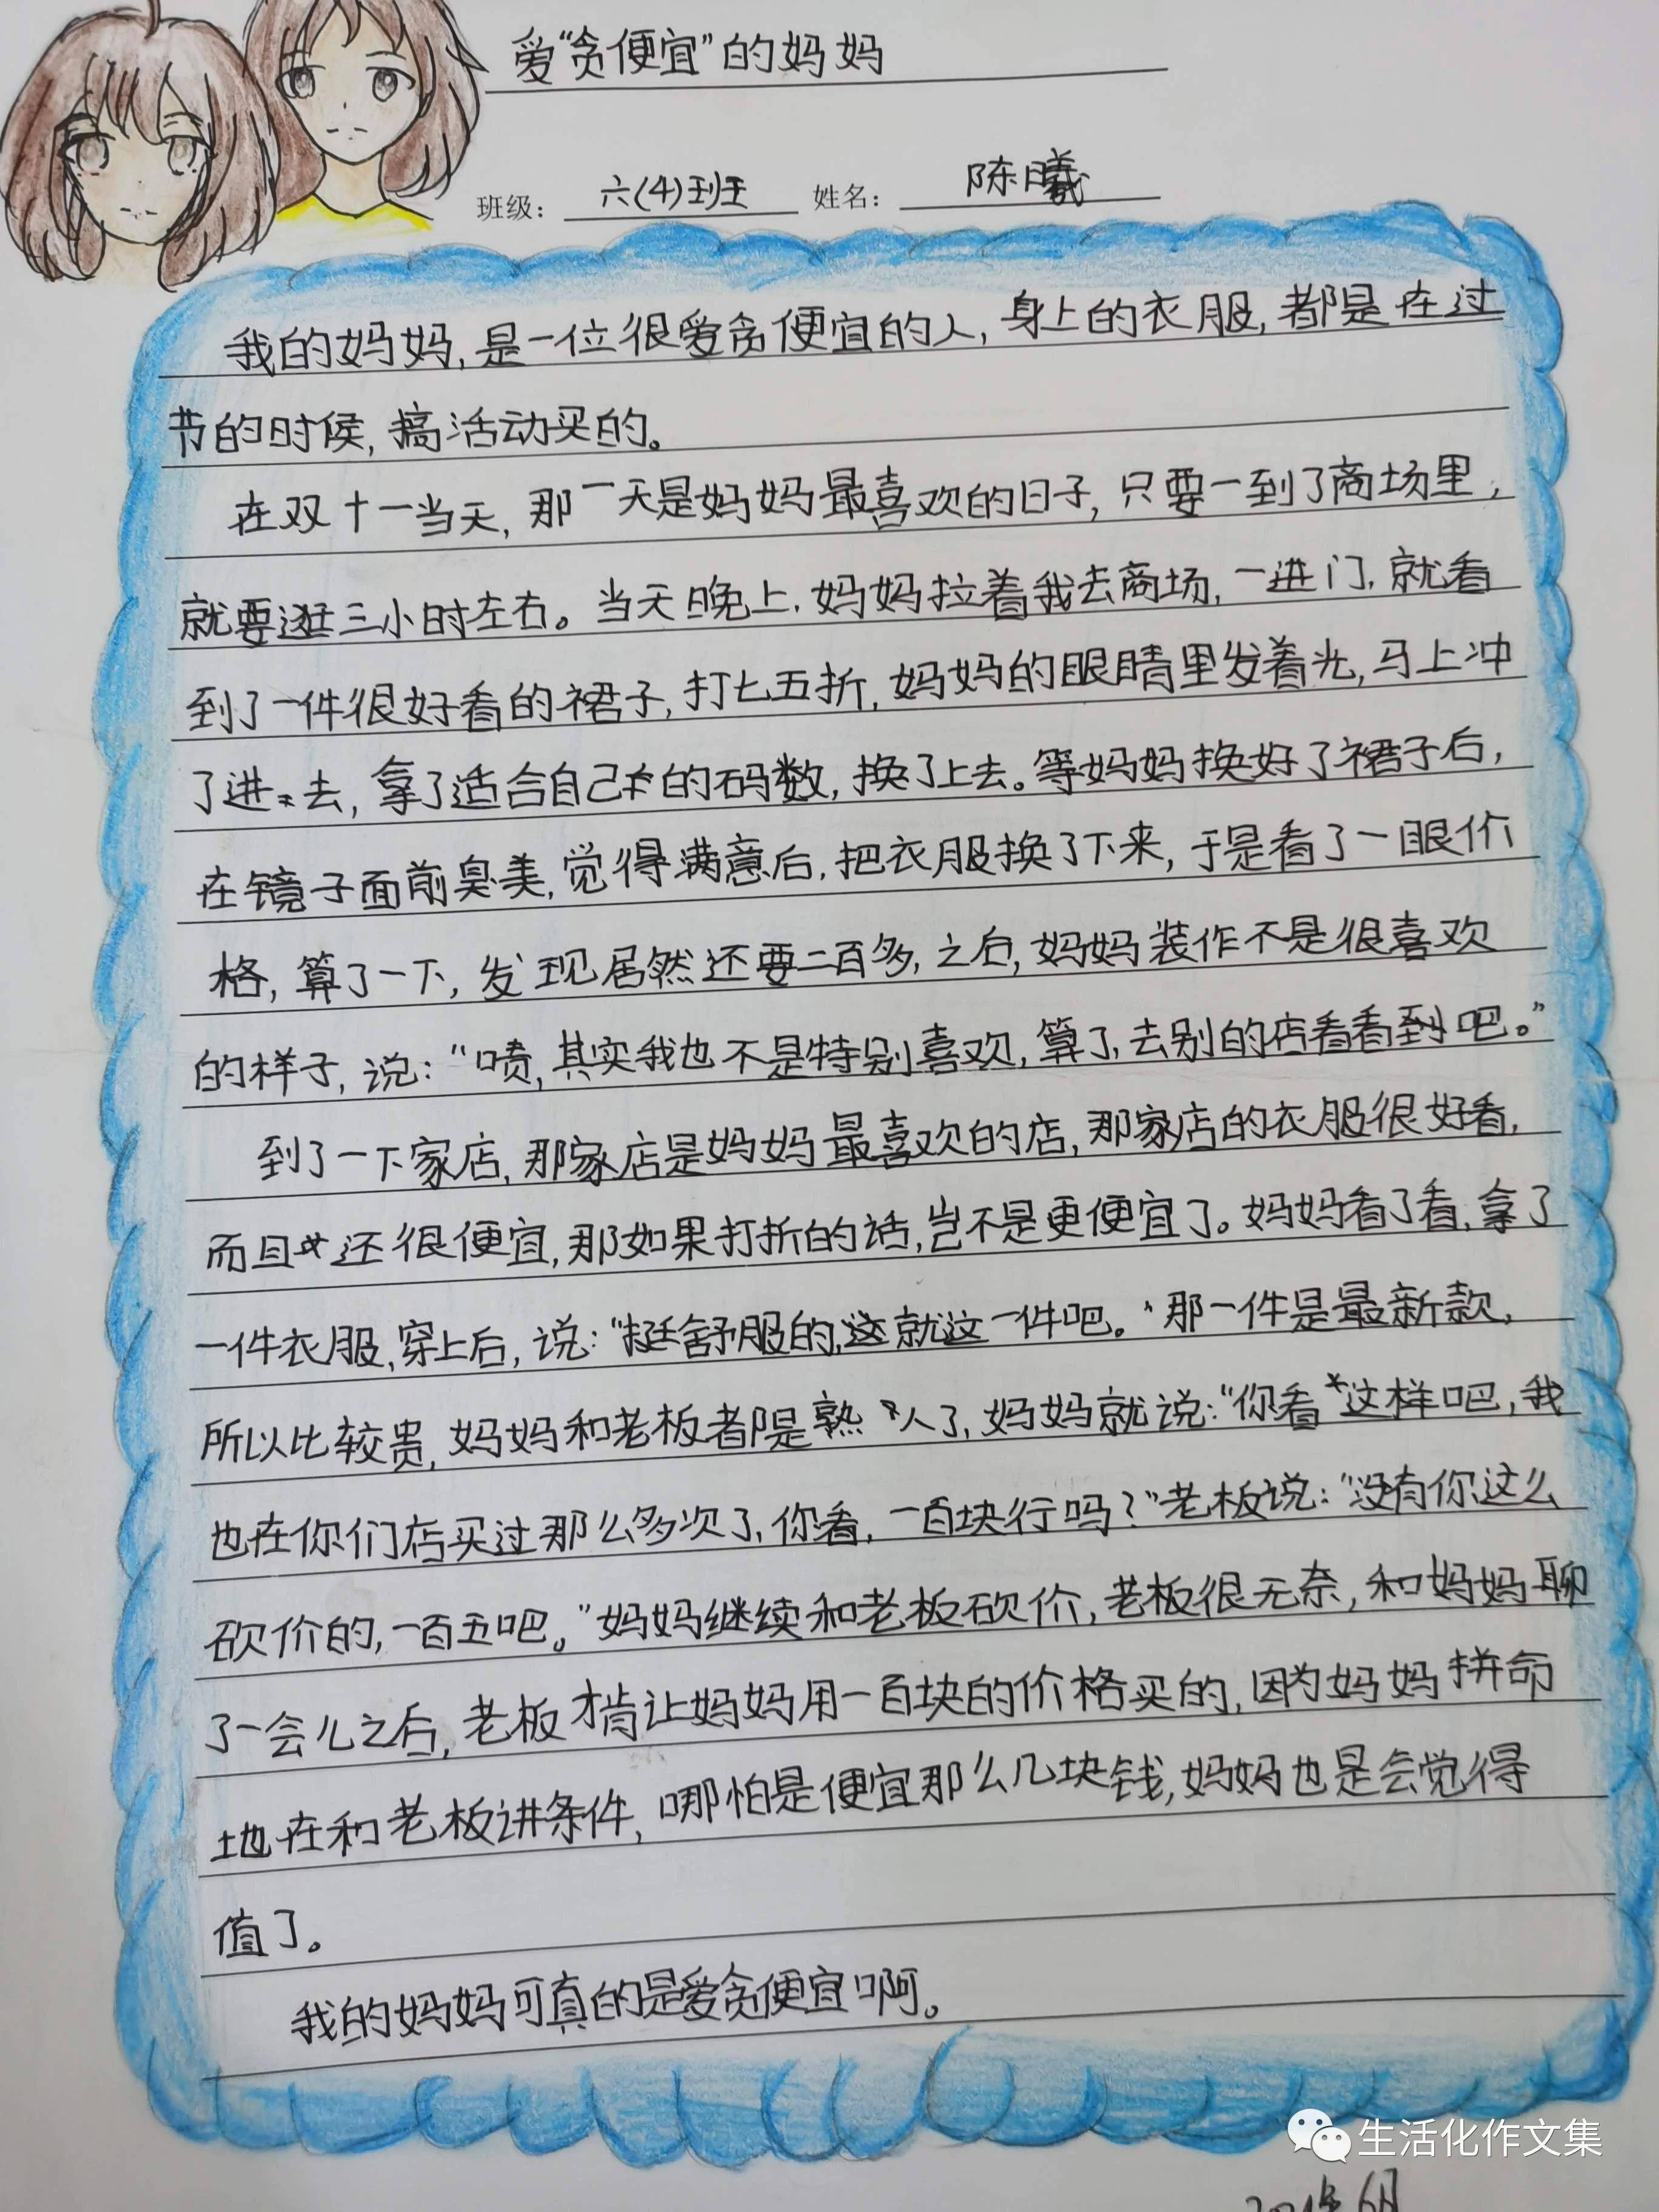 爱“贪便宜”的妈妈
班级：六(4)班 姓名：陈曦
我的妈妈,是一位很爱贪便宜的人,身上的衣服,都是在过
节的时候,搞活动买的。
在双十一当天,那一天是妈妈最喜欢的日子,只要一到了商场里,
就要逛三小时左右。当天晚上,妈妈拉着我去商场,一进门,就看
到了一件很好看的裙子,打七五折,妈妈的眼睛里发着光,马上冲
了进去,拿了适合自己的码数,换了上去。等妈妈换好了裙子后,
在镜子面前臭美,觉得满意后,把衣服换了下来,于是看了一眼价
格,算了一下,发现居然还要二百多,之后,妈妈装作不是很喜欢
的样子,说:“啧,其实我也不是特别喜欢,算了,去别的店看看到吧。”
到了一下家店,那家店是妈妈最喜欢的店,那家店的衣服很好看,
而且还很便宜,那如果打折的话,岂不是更便宜了。妈妈看了看,拿了
一件衣服,穿上后,说:“挺舒服的,这就这一件吧。”那一件是最新款,
所以比较贵,妈妈和老板都是熟人了,妈妈就说:“你看这样吧,我
也在你们店买过那么多次了,你看,一百块行吗?”老板说:“没有你这么
砍价的,一百五吧。”妈妈继续和老板砍价,老板很无奈,和妈妈聊
了一会儿之后,老板才肯让妈妈用一百块的价格买的,因为妈妈拼命
地在和老板讲条件,哪怕是便宜那么几块钱,妈妈也是会觉得
值了。
我的妈妈可真的是爱贪便宜啊。
生活化作文集
6月